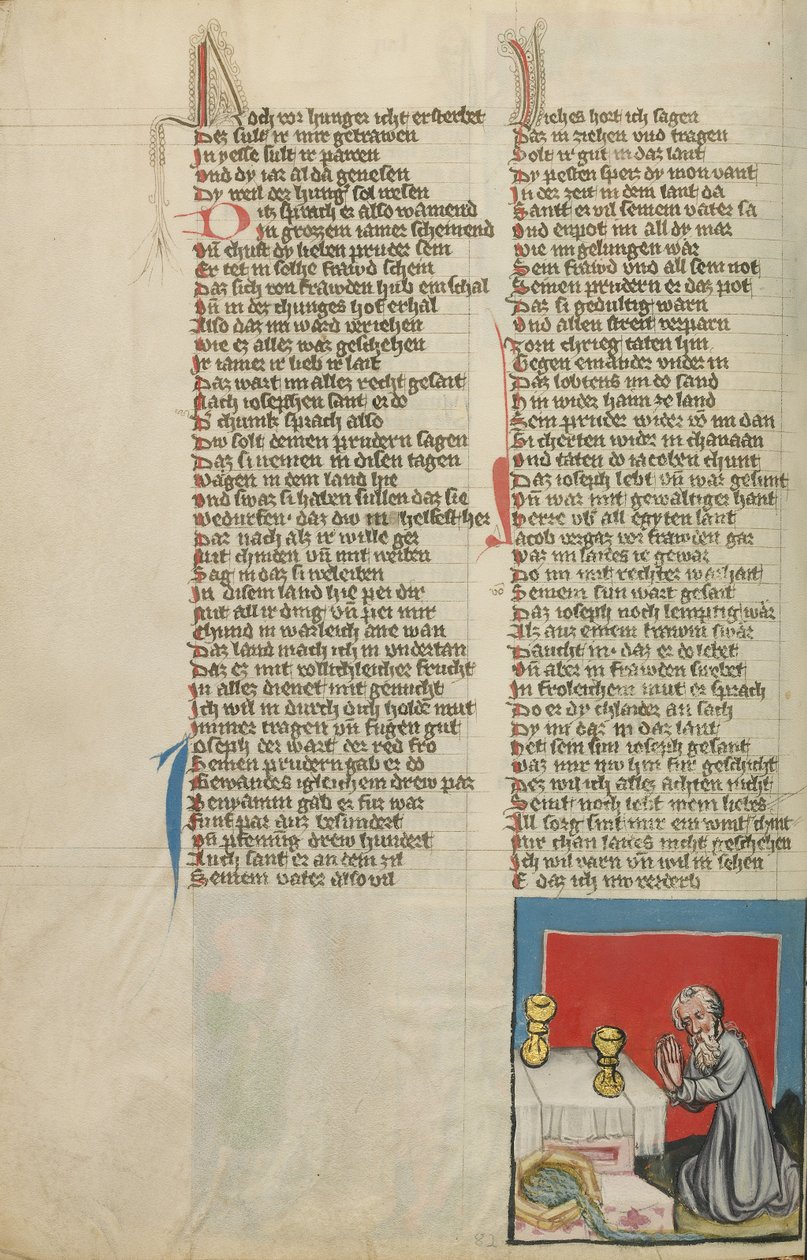 Noch vor hunger icht ersterbet
Dez sult ir mir getrawen
In yesse sult ir pawen
Vnd dy iar al da genesen
Dy weil der hung' sol wesen
Ditz sprach er also wainend
In grozzem iamer scheinend
Vn̄ chust dy lieben pruder sein
Er tet in solhe frawd schein
Daz sich von frawden hub ein schal
Vn̄ in dez chunges hof erhal
Also daz im ward veriehen
Wie ez allez waz geschehen
Ir iamer ir lieb ir lait
Daz wart im allez recht gesait
Nach iosephen sant er do
D' chunik sprach also
Dw solt deinen prudern sagen
Daz si nemen in disen tagen
Wagen in dem land hie
Vnd swaz si haben sullen daz sie
Bedurfen· daz dw in helfest her
Dar nach alz ir wille ger
Mit chinden vn̄ mit weiben
Sag in daz si beleiben
In disem land hie pei dir
Mit all ir ding vn̄ pei mir
Chund in warleich ane wan
Daz land mach ich in vndertan
Daz ez mit vollichleicher frucht
In allez dienet mit genucht
Ich wil in durch dich holde mut
Immer tragen vn̄ fugen gut
Ioseph der wart der red fro
Seinen prudern gab er do
Gewandes igleichem drew par
Benyamin gab er fur war
Funf par auz besundert
Vn̄ pfennig drew hundert
Auch sant er an dem zil
Seinem vater also vil
Viehes hort ich sagen
Daz in ziehen vnd tragen
Solt ir gut in daz lant
Dy pesten speiz dy mon vant
In der zeit in dem lant da
Santt er vil seinem vater sa
Vnd enpot im all dy mar
Wie im gelungen war
Sein frawd vnd all sein not
Seinen prudern er daz pot
Daz si gedultig warn
Vnd allen streit verparn
Zorn chrieg taten hin
Gegen einander vnder in
Daz lobtens im do sand
H in wider haim ze land
Sein pruder wider vō im dan
Si cherten wider in chanaan
Vnd taten do iacoben chunt
Daz ioseph lebt vn̄ war gesunt
Vn̄ war mit gewaltiger hant
Herre vb' all egypten lant
Jacob vergaz vor frawden gar
Waz im laides ie gewar
Do im mit rechter warhait
vō Seinem sun wart gesait
Daz ioseph noch lemptig war
Alz auz einem trawm swar
Daucht in· daz er do lebet
Vn̄ aber in frawden swebet
In froleichem mut er sprach
Do er dy chlaider an sach
Dy im daz in daz lant
Het sein sun ioseph gesant
Waz mir nw hin fur geschicht
Dez wil ich allez achten nicht
Seint noch lebt mein liebes
All sorg sint mir ein wint chint
Mir chan laides nicht geschehen
Ich wil varn vn̄ wil in sehen
E daz ich nw verderb
82